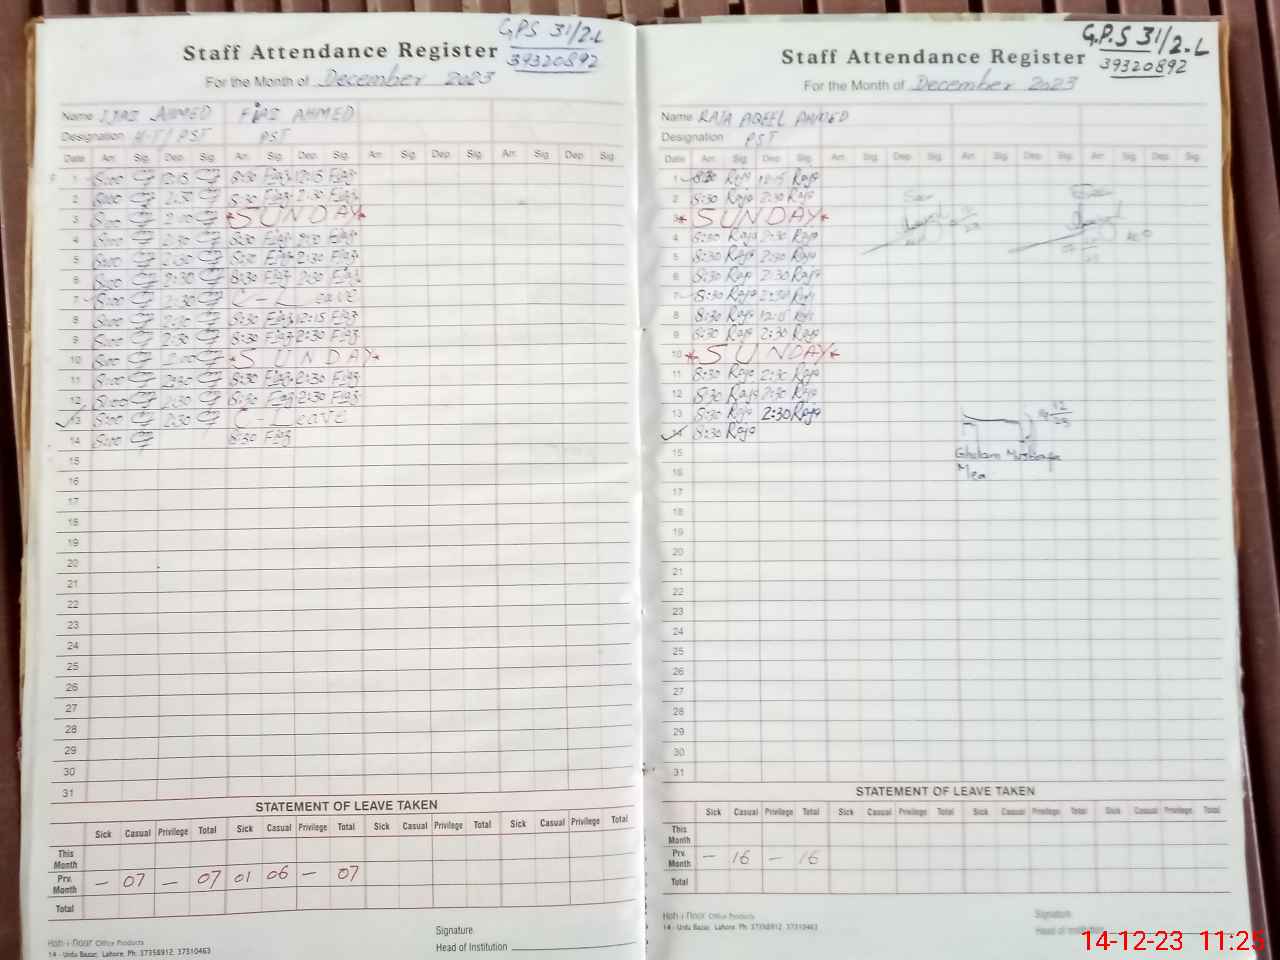 G.P.S 31/2.L
Staff Attendance Register
39320892
For the Month of December 2023
Name IJAZ AHMED FIAZ AHMED
Designation H-T/PST PST
Date Arr. Sig. Dep. Sig. Arr. Sig. Dep. Sig. Arr. Sig. Dep. Sig. Arr. Sig. Dep. Sig.
1 8:00 12:15 8:30 Fiaz 12:15 Fiaz
2 8:00 2:30 8:30 Fiaz 2:30 Fiaz
3 8:00 2:00 *SUNDAY*
4 8:00 2:30 8:30 Fiaz 2:30 Fiaz
5 8:00 2:30 8:30 Fiaz 2:30 Fiaz
6 8:00 2:30 8:30 Fiaz 2:30 Fiaz
7 8:00 2:30 C-Leave
8 8:00 8:30 Fiaz 12:15 Fiaz
9 8:00 2:30 8:30 Fiaz 2:30 Fiaz
10 8:00 2:00 *SUNDAY*
11 8:00 2:30 8:30 Fiaz 2:30 Fiaz
12 8:00 2:30 8:30 Fiaz 2:30 Fiaz
13 8:00 2:30 C-Leave
14 8:00 8:30 Fiaz
15
16
17
18
19
20
21
22
23
24
25
26
27
28
29
30
31
STATEMENT OF LEAVE TAKEN
Sick Casual Privilege Total Sick Casual Privilege Total Sick Casual Privilege Total Sick Casual Privilege Total
This Month
Prv. Month – 07 – 07 01 06 – 07
Total
Koh-i-Noor Office Products
14 - Urdu Bazar, Lahore. Ph: 37358912, 37310463
Signature.
Head of Institution
G.P.S 31/2.L
Staff Attendance Register
39320892
For the Month of December 2023
Name RAJA AQEEL AHMED
Designation PST
Date Arr. Sig. Dep. Sig. Arr. Sig. Dep. Sig. Arr. Sig. Dep. Sig. Arr. Sig. Dep. Sig.
1 8:30 Raja 12:15 Raja
2 8:30 Raja 2:30 Raja
3 *SUNDAY*
4 8:30 Raja 2:30 Raja
5 8:30 Raja 2:30 Raja
6 8:30 Raja 2:30 Raja
7 8:30 Raja 2:30 Raja
8 8:30 Raja 12:15 Raja
9 8:30 Raja 2:30 Raja
10 *SUNDAY*
11 8:30 Raja 2:30 Raja
12 8:30 Raja 2:30 Raja
13 8:30 Raja 2:30 Raja
14 8:30 Raja
15 Ghulam Mustafa
16 Mea
17
18
19
20
21
22
23
24
25
26
27
28
29
30
31
STATEMENT OF LEAVE TAKEN
Sick Casual Privilege Total Sick Casual Privilege Total Sick Casual Privilege Total Sick Casual Privilege Total
This Month
Prv. Month – 16 – 16
Total
Koh-i-Noor Office Products
14 - Urdu Bazar, Lahore. Ph: 37358912, 37310463
Signature.
Head of Institution
14-12-23 11:25